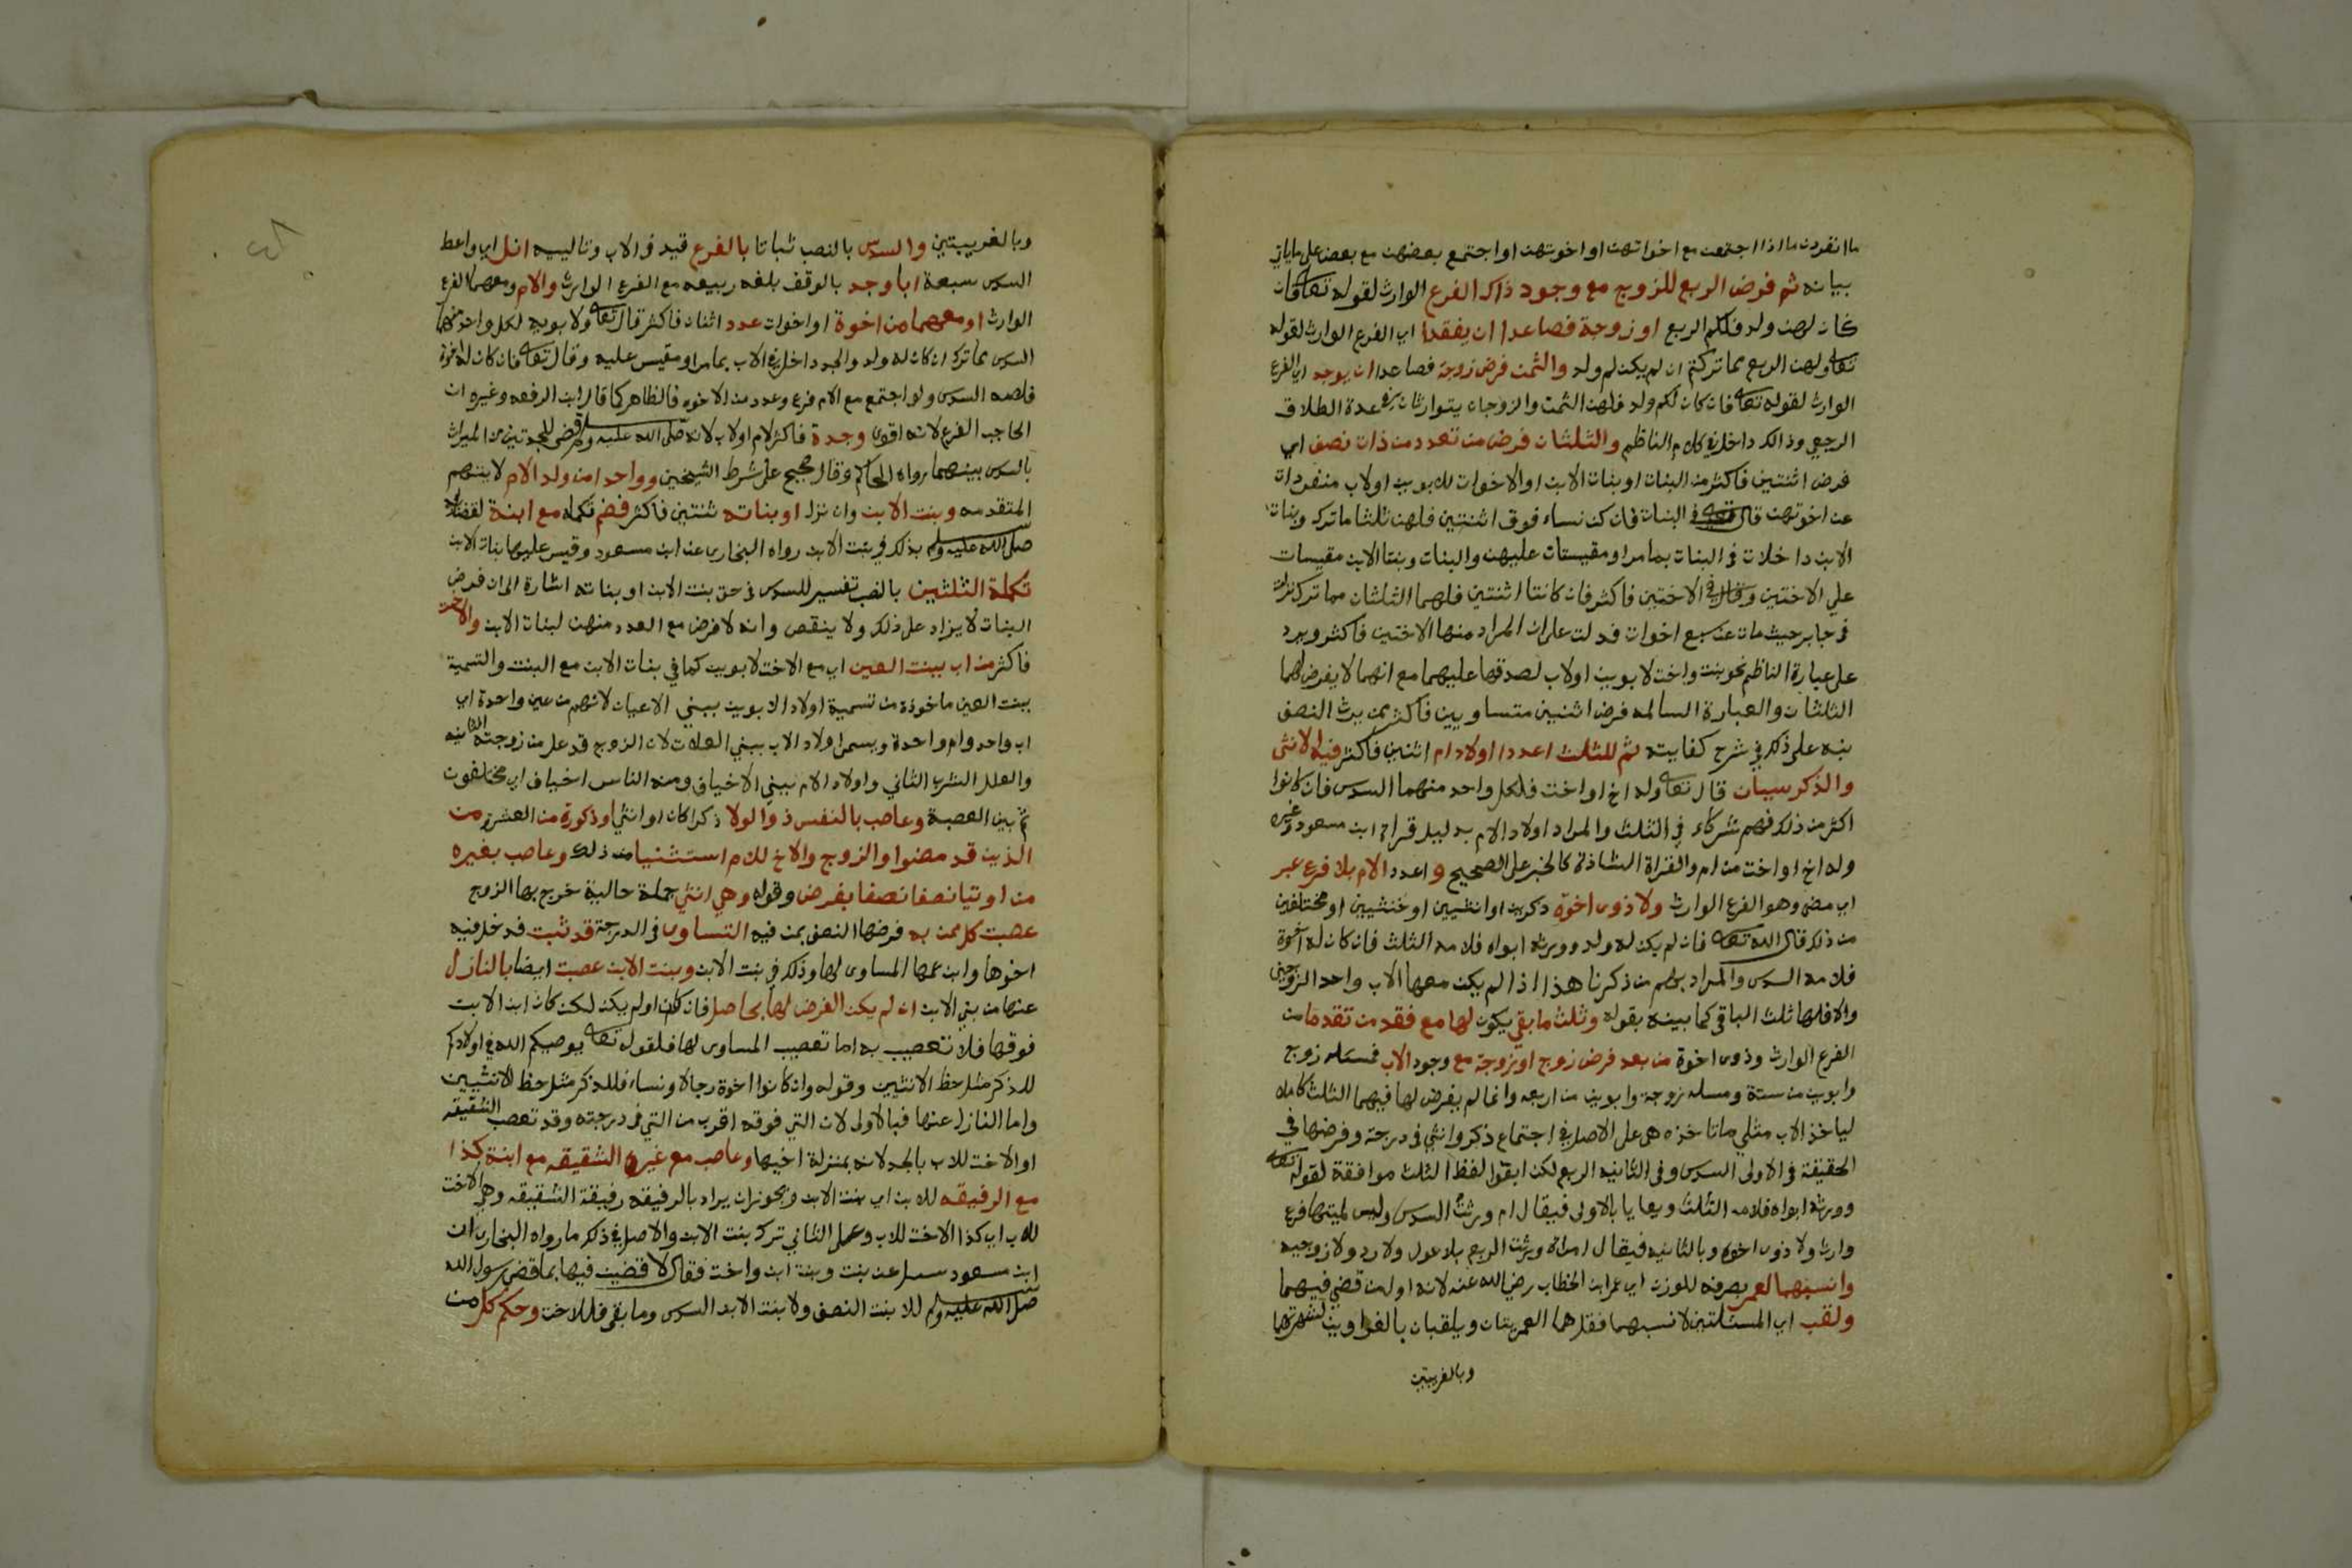 ما انفردن ما اذا اجتمعت مع اخواتهن او اخوتهن او اجتمع بعضهن مع بعض على ماياتي
بيانه ثم فرض الربع للزوج مع وجود ذاك الفرع الوارث لقوله تعالى فان
كان لهن ولد فلكم الربع او زوجة فصاعدا ان يفقدا اي الفرع الوارث لقوله
تعالى ولهن الربع مما تركتم ان لم يكن لكم ولد والثمن فرض زوجة فصاعدا ان يوجد اي الفرع
الوارث لقوله تعالى فان كان لكم ولد فلهن الثمن والزوجان يتوارثان في عدة الطلاق
الرجعي وذالك داخل في كلام الناظم والثلثان فرض من تعدد من ذات نصف اي
فرض اثنتين فاكثر من البنات او بنات الابن او الاخوات للابوين او لاب منفردات
عن اخوتهن قال تعالى في البنات فان كن نساء فوق اثنتين فلهن ثلثا ما ترك وبنات
الابن داخلات في البنات بما مر او مقيسات عليهن والبنات وبنتا الابن مقيسات
على الاختين وقال في الاختين فاكثر فان كانتا اثنتين فلهما الثلثان مما ترك نزلت
في جابر حيث مات عن سبع اخوات فدلت على ان المراد منها الاختين فاكثر ويرد
على عبارة الناظم نحو بنت واخت لابوين او لاب لصدقها عليهما مع انهما لا يفرض لهما
الثلثان والعبارة السالمه فرض اثنين متساويين فاكثر ممن يرث النصف
نبه على ذلك في شرح كفايته ثم للثلث اعددا اولاد ام اثنين فاكثر فيه الانثى
والذكر سيان قال تعالى وله اخ او اخت فلكل واحد منهما السدس فان كانوا
اكثر من ذلك فهم شركاء في الثلث والمراد اولاد الام بدليل قراة ابن مسعود وغيره
وله اخ او اخت من ام والقراة الشاذة كالخبر على الصحيح واعدد الام بلا فرع عبر
اي مضى وهو الفرع الوارث ولا ذوى اخوة ذكرين او انثيين او خنثيين او مختلفين
من ذلك قال الله تعالى فان لم يكن له ولد وورثه ابواه فلامه الثلث فان كان له اخوة
فلامه السدس والمراد بهم من ذكرنا هذا اذا لم يكن معها الاب واحد الزوجين
والا فلها ثلث الباقي كما بينه بقوله وثلث ما بقي يكون لها مع فقد من تقدما من
الفرع الوارث وذوى اخوة من بعد فرض زوج او زوجة مع وجود الاب فمسئله زوج
وابوين من ستة ومسله زوجة وابوين من اربعه وانما لم يفرض لها فيهما الثلث كاملا
لياخذ الاب مثلي ما تاخذه هي على الاصل في اجتماع ذكر وانثى في درجة وفرضها في
الحقيقة في الاولى السدس وفي الثانيه الربع لكن ابقوا لفظ الثلث موافقة لقوله تعالى
وورثه ابواه فلامه الثلث ويعايا بالاولى فيقال ام ورثت السدس وليس لميتها فرع
وارث ولا ذوى اخوة وبالثانيه فيقال امراة ورثت الربع بلا عول ولا رد ولا زوجيه
وانسبهما لعمر بصرفه للوزن اي عمر ابن الخطاب رضي الله عنه لانه اول من قضى فيهما
ولقب اي المسئلتين لانسبهما فقل هما العمريتان ويلقبان بالغراوين لشهرتهما
وبالغريبتين
وبالغريبتين والسدس بالنصب ثباتا بالفرع قيد في الاب وتالييه انل اي واعط
السدس سبعة ابا وجد بالوقف بلغه ربيعه مع الفرع الوارث والام ومعهما الفرع
الوارث او معهما من اخوة او اخوات عدد اثنان فاكثر قال تعالى ولابويه لكل واحد منهما
السدس مما ترك ان كان له ولد والجد داخل في الاب بما مر او مقيس عليه وقال تعالى فان كان له اخوة
فلامه السدس ولو اجتمع مع الام فرع وعدد من الاخوه فالظاهر كما قال ابن الرفعه وغيره ان
الحاجب الفرع لانه اقوى وجدة فاكثر لام او لاب لانه صلى الله عليه وسلم قضى للجدتين من الميراث
بالسدس بينهما رواه الحاكم وقال صحيح على شرط الشيخين وواحدا من ولد الام لابنهم
المتقدمه وبنت الابن وان نزل او بناته ثنتين فاكثر فضم تكمله مع ابنة لقضائه
صلى الله عليه وسلم بذلك في بنت الابن رواه البخارى عن ابن مسعود وقيس عليها بنات الابن
تكملة الثلثين بالنصب تفسير للسدس في حق بنت الابن او بناته اشارة الى ان فرض
البنات لا يزاد على ذلك ولا ينقص وانه لا فرض مع العدد منهن لبنات الابن والاخت
فاكثر من اب ببنت العين اي مع الاخت لابوين كما في بنات الابن مع البنت والتسمية
ببنت العين ماخوذة من تسمية اولاد الابوين ببني الاعيان لانهم من عين واحدة اي
اب واحد وام واحدة ويسمى اولاد الاب ببني العلات لان الزوج قد عل من زوجته الثانيه
والعلل الشرب الثاني واولاد الام ببني الاخياف ومنه الناس اخياف اي مختلفون
ثم بين العصبة وعاصب بالنفس ذو الولا ذكرا كان او انثى وذكورة من العشرة من
الذين قد مضوا والزوج والاخ للام استثنيا من ذلك وعاصب بغيره
من اوتيا نصفا نصفا بفرض وقوله وهي انثى جملة حالية خرج بها الزوج
عصبت كل ممن به فرضها النصف بمن فيه التساوى في الدرجة قد ثبت فدخل فيه
اخوها وابن عمها المساوى لها وذلك في بنت الابن وبنت الابن عصبت ايضا بالنازل
عنها من بني الابن ان لم يكن الفرض لها بحاصل فان كان او لم يكن لكن كان ابن الابن
فوقها فلا تعصيب به اما تعصيب المساوى لها فلقوله تعالى يوصيكم الله في اولادكم
للذكر مثل حظ الانثيين وقوله وان كانوا اخوة رجالا ونساء فللذكر مثل حظ الانثيين
واما النازل عنها فبالاولى لان التي فوقه اقرب من التي في درجته وقد تعصب الشقيقه
او الاخت للاب بالجد لانه بمنزلة اخيها وعاصب مع غيره الشقيقه مع ابنة كذا
مع الرفيقه للابن اي بنت الابن ويجوز ان يراد بالرفيقه رفيقة الشقيقه وهي الاخت
للاب اي كذا الاخت للاب وعمل الثاني ترك بنت الابن والاصل في ذلك ما رواه البخارى ان
ابن مسعود سيل عن بنت وبنت ابن واخت فقال لاقضين فيها بما قضى رسول الله
صلى الله عليه وسلم للابنت النصف ولابنت الابن السدس وما بقى فللاخت وحكم كل من